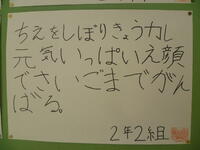 ちえをしぼりきょう力し
元気いっぱいえ顔
でさいごまでがん
ばる。
2年2組